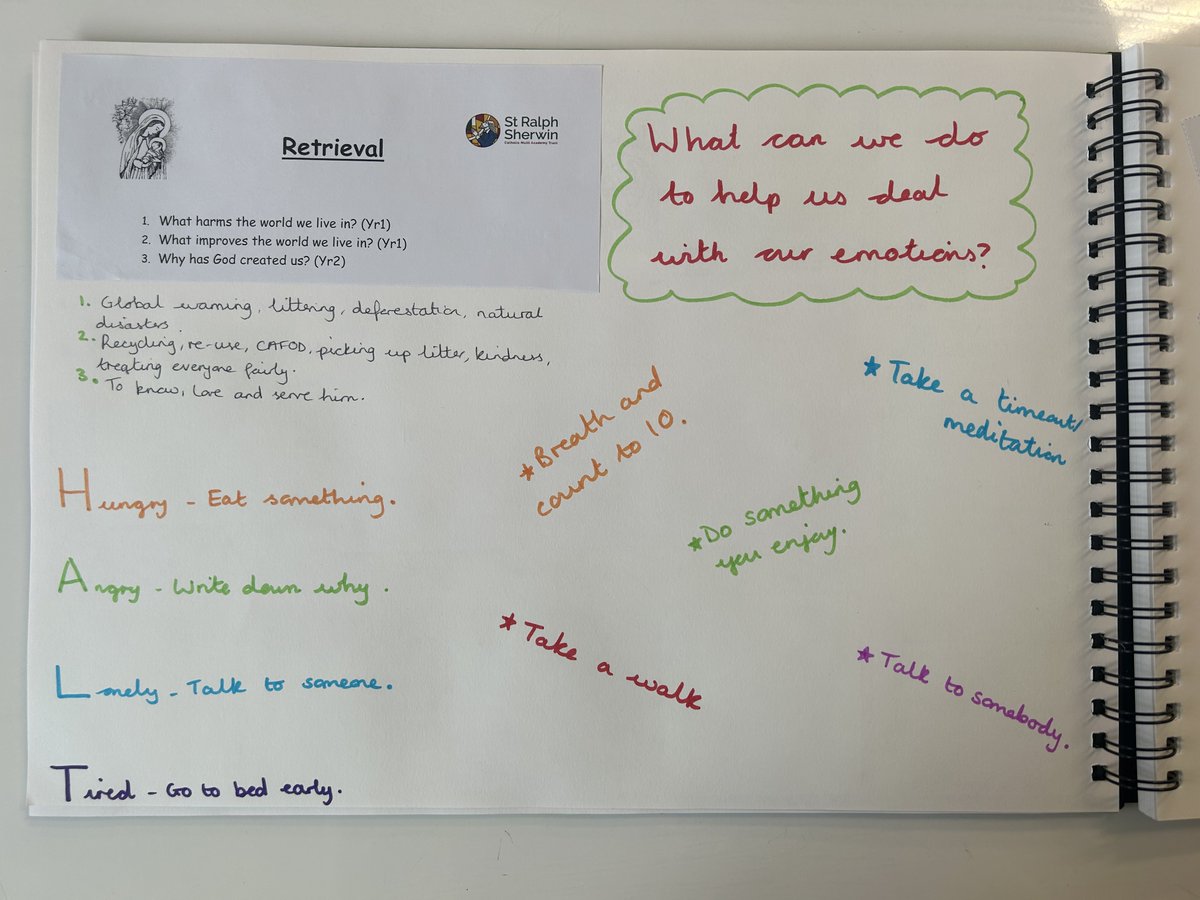 Retrieval
St Ralph
Sherwin
Catholic Multi Academy Trust
1. What harms the world we live in? (Yr1)
2. What improves the world we live in? (Yr1)
3. Why has God created us? (Yr2)
1. Global warming, littering, deforestation, natural
disasters.
2. Recycling, re-use, CAFOD, picking up litter, kindness,
treating everyone fairly.
3. To know, love and serve him.
What can we do
to help us deal
with our emotions?
* Breath and
count to 10.
* Take a timeout/
meditation
* Do something
you enjoy.
* Take a walk
* Talk to somebody.
Hungry - Eat something.
Angry - Write down why.
Lonely - Talk to someone.
Tired - Go to bed early.